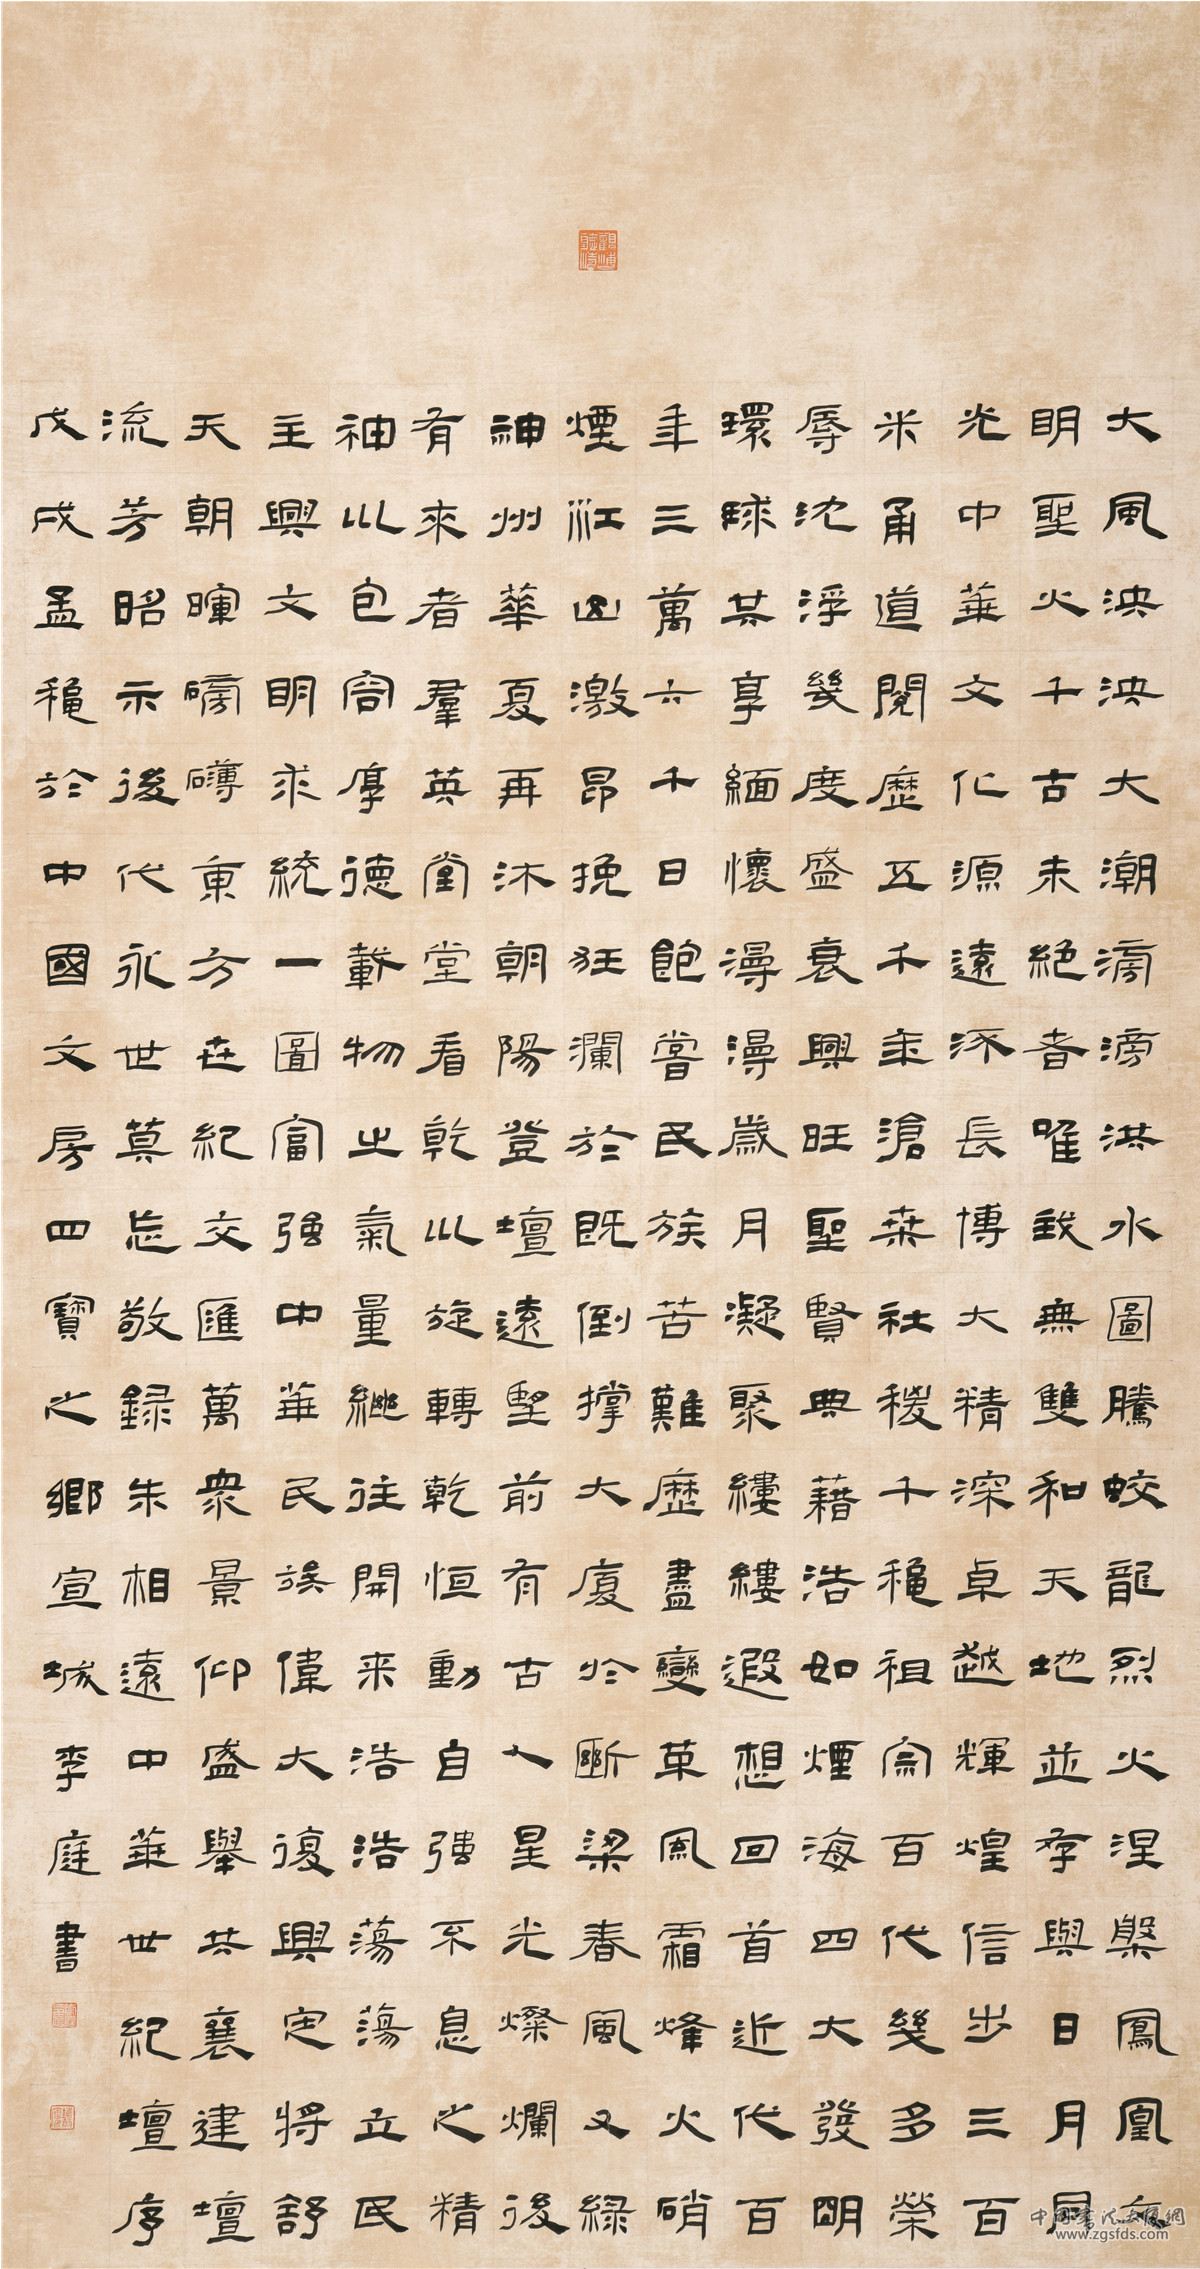 大風泱泱大潮滂滂洪水圖騰蛟龍烈火涅槃鳳凰文
明聖火千古未絕者唯我無雙和天地並存與日月同
光中華文化源遠流長博大精深卓越輝煌信步三百
米甬道閱歷五千年滄桑社稷千穐祖宗百代幾多榮
辱沈浮幾度盛衰興旺聖賢典藉浩如煙海四大發明
環球共享緬懷漫漫歲月凝聚縷縷遐想回首近代百
年三萬六千日飽嘗民族苦難歷盡變革風霜烽火硝
煙江山激昂挽狂瀾於既倒撐大廈於斷梁春風又綠
神州華夏再沐朝陽登壇遠望前有古人星光燦爛後
有來者羣英堂堂看乾以旋轉乾恒動自強不息之精
神以包容厚德載物之氣量繼往開来浩浩蕩蕩立民
主興文明求統一圖富強中華民族偉大復興定將舒
天朝暉磅礴東方世紀交匯萬衆景仰盛舉共襄建壇
流芳昭示後代永世莫忘敬録朱相遠中華世紀壇序
戊戌孟穐於中國文房四寶之鄉宣城李庭書
www.zgsfds.com